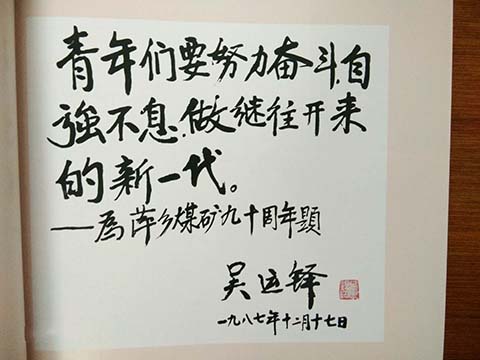 青年们要努力奋斗,自
強不息,做继往开来
的新一代。
——為萍乡煤矿九十周年題
吴运铎
一九八七年十二月十七日